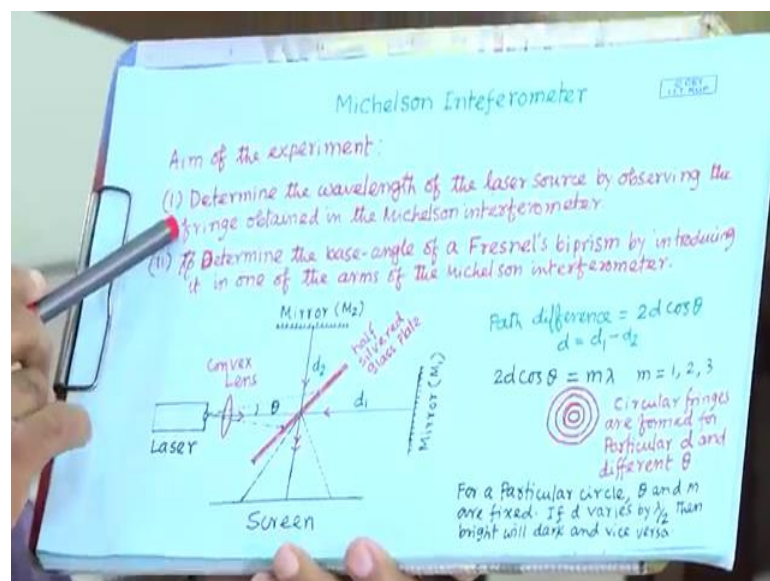 Michelson Inteferometer
IIT KGP
Aim of the experiment:
(I) Determine the wavelength of the laser source by observing the
fringe obtained in the Michelson interferometer.
(II) To Determine the base-angle of a Fresnel's biprism by introducing
it in one of the arms of the Michelson interferometer.
Mirror (M₂)
half
silvered
glass plate
d₂
Convex
Lens
θ
d₁
Mirror (M₁)
Laser
Screen
Path difference = 2d cosθ
d = d₁ - d₂
2d cosθ = mλ m = 1, 2, 3
Circular fringes
are formed for
Particular d and
different θ
For a Particular circle, θ and m
are fixed. If d varies by λ/2 then
bright will dark and vice versa